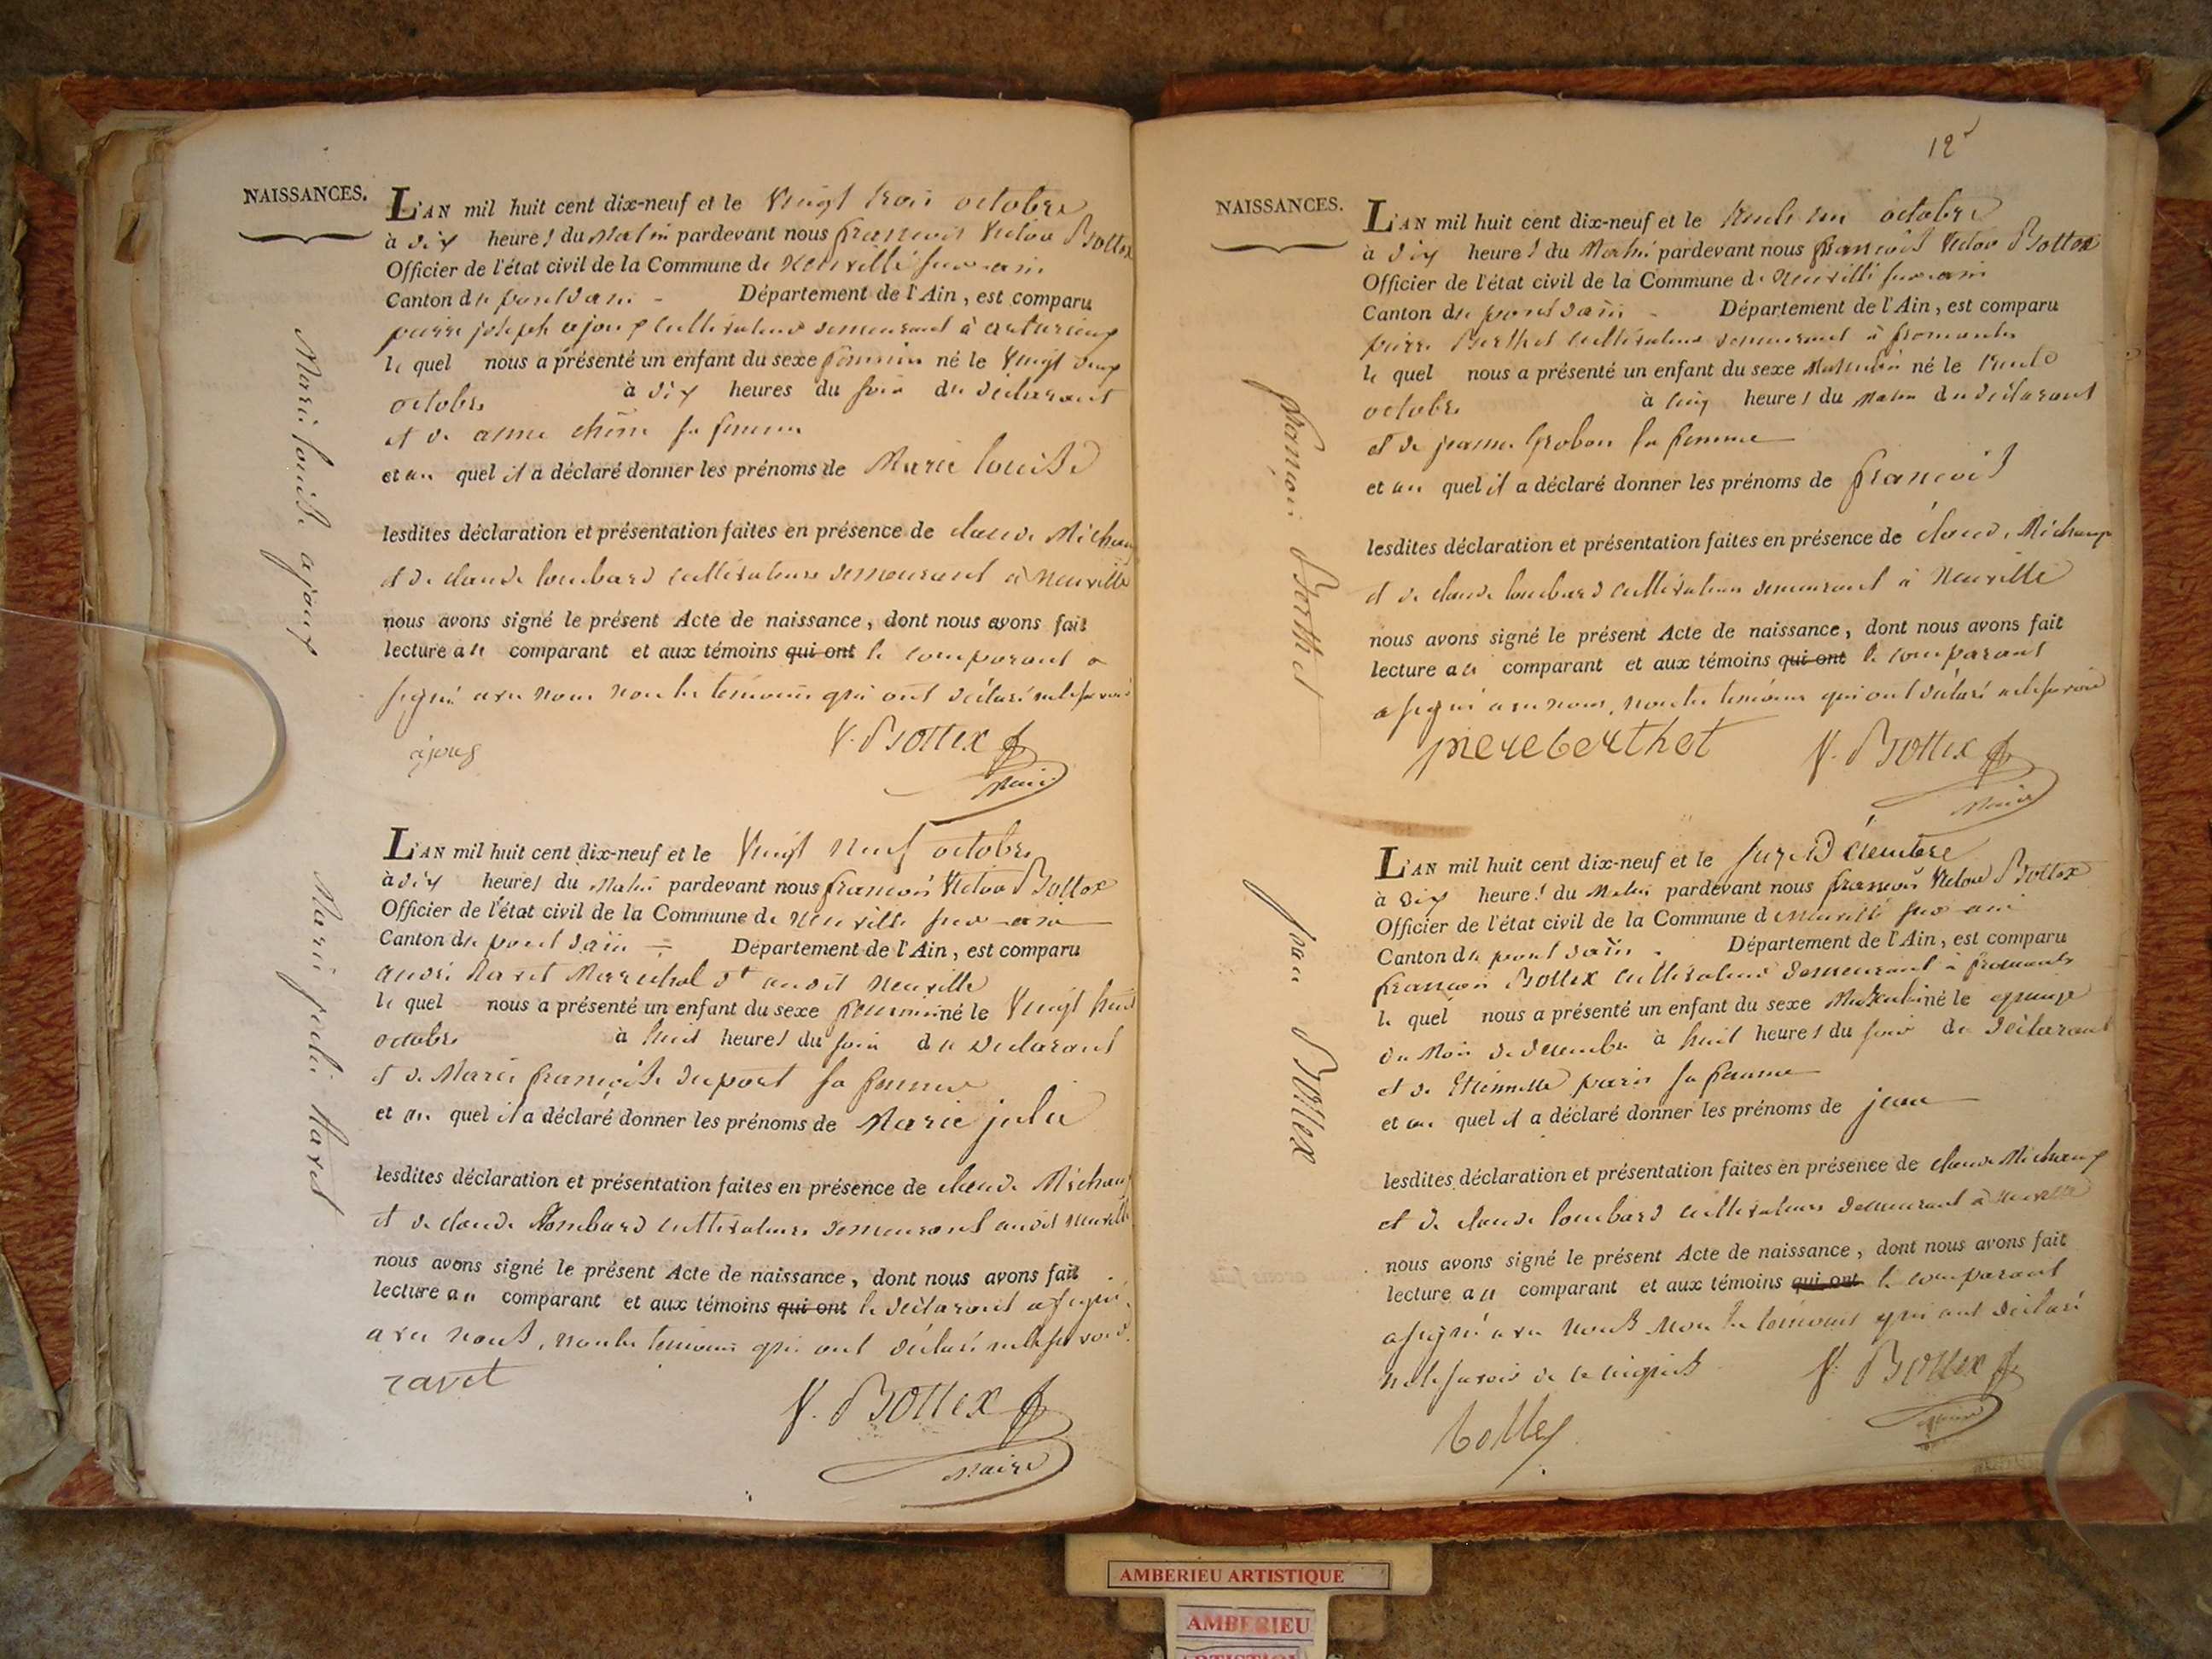 NAISSANCES.
L'AN mil huit cent dix-neuf et le Vingt trois octobre
à dix heures du Matin pardevant nous françois Victor Bottex
Officier de l'état civil de la Commune de Neuville sur ain
Canton du pont dain - Département de l'Ain, est comparu
pierre joseph ajoux cultivateur demeurant à
le quel nous a présenté un enfant du sexe féminin né le Vingt deux
octobre à dix heures du soir du déclarant
et de anne chêne sa femme
et au quel il a déclaré donner les prénoms de Marie louise
lesdites déclaration et présentation faites en présence de claude Michaux
et de claude loubard cultivateurs demeurant à Neuville
nous avons signé le présent Acte de naissance, dont nous avons fait
lecture au comparant et aux témoins qui ont le comparant a
signé avec nous non les témoins qui ont déclaré ne le savoir
ajoux
V. Bottex
Maire
Marie louise ajoux
L'AN mil huit cent dix-neuf et le Vingt neuf octobre
à dix heures du Matin pardevant nous françois Victor Bottex
Officier de l'état civil de la Commune de Neuville sur ain
Canton du pont dain - Département de l'Ain, est comparu
andré Ravet Marechal dt audit Neuville
le quel nous a présenté un enfant du sexe féminin né le Vingt huit
octobre à huit heures du soir du déclarant
et de Marie françoise dupont sa femme
et au quel il a déclaré donner les prénoms de Marie julie
lesdites déclaration et présentation faites en présence de claude Michaux
et de claude lombard cultivateurs demeurant audit Neuville
nous avons signé le présent Acte de naissance, dont nous avons fait
lecture au comparant et aux témoins qui ont le déclarant a signé
avec nous, non les témoins qui ont déclaré ne le savoir.
ravet
V. Bottex
Maire
Marie julie Ravet
12
NAISSANCES.
L'AN mil huit cent dix-neuf et le trente un octobre
à dix heures du Matin pardevant nous françois Victor Bottex
Officier de l'état civil de la Commune de Neuville sur ain
Canton du pont dain - Département de l'Ain, est comparu
pierre Berthet cultivateur demeurant à fromentes
le quel nous a présenté un enfant du sexe Masculin né le trente
octobre à cinq heures du Matin du déclarant
et de jeanne Grobon sa femme
et au quel il a déclaré donner les prénoms de françois
lesdites déclaration et présentation faites en présence de claude Michaux
et de claude loubard cultivateurs demeurant à Neuville
nous avons signé le présent Acte de naissance, dont nous avons fait
lecture au comparant et aux témoins qui ont le comparant
a signé avec nous, non les témoins qui ont déclaré ne le savoir
piereberthet
V. Bottex
Maire
françois Berthet
L'AN mil huit cent dix-neuf et le seize Décembre
à dix heures du Matin pardevant nous françois Victor Bottex
Officier de l'état civil de la Commune de Neuville sur ain
Canton du pont dain - Département de l'Ain, est comparu
françois Bottex cultivateur demeurant à fromentes
le quel nous a présenté un enfant du sexe Masculin né le quinze
du Mois de decembre à huit heures du soir du déclarant
et de Etiennette paris sa femme
et au quel il a déclaré donner les prénoms de jean
lesdites déclaration et présentation faites en présence de claude Michaux
et de claude loubard cultivateurs demeurant à Neuville
nous avons signé le présent Acte de naissance, dont nous avons fait
lecture au comparant et aux témoins qui ont le comparant
a signé avec nous non les témoins qui ont déclaré
ne le savoir de ce enquis
V. Bottex
Maire
jean Bottex
AMBERIEU ARTISTIQUE
AMBERIEU
ARTISTIQUE